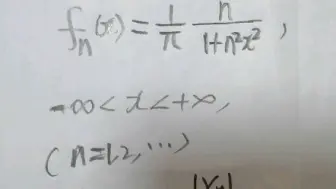 fₙ(x) = 1/π n/(1+n²x²) ,
-∞ < x < +∞,
(n=1,2,⋯)